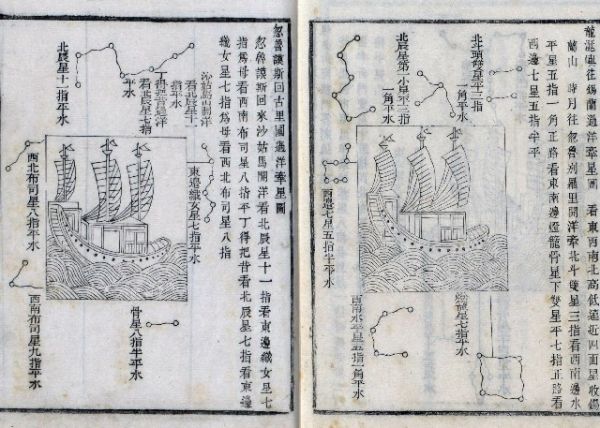 龍涎嶼往錫蘭過洋牽星圖 看東西南北高低遠近四面星收錫
蘭山 時月往忽魯別羅里開洋牽北斗雙星三指看西南邊水
平星五指一角正路看東南邊燈籠骨星下雙星平七指正路看
西邊七星五指半平
北斗雙星平三指
一角平水
北辰星第一小星平三指
一角平水
西邊七星五指半平水
籠星七指平水
西南水平星五指一角平水
忽魯謨斯回古里國過洋牽星圖
忽魯謨斯回來沙姑馬開洋看北辰星十一指看東邊織女星七
指為母看西南布司星八指平丁得把昔看北辰星七指看東邊
織女星七指為母看西北布司星八指
沙姑馬山開洋
看北辰星十一
指平水
丁得把昔過洋
看北辰星七指
平水
北辰星十一指平水
東邊織女星七指平水
西北布司星八指平水
骨星八指半平水
西南布司星九指平水